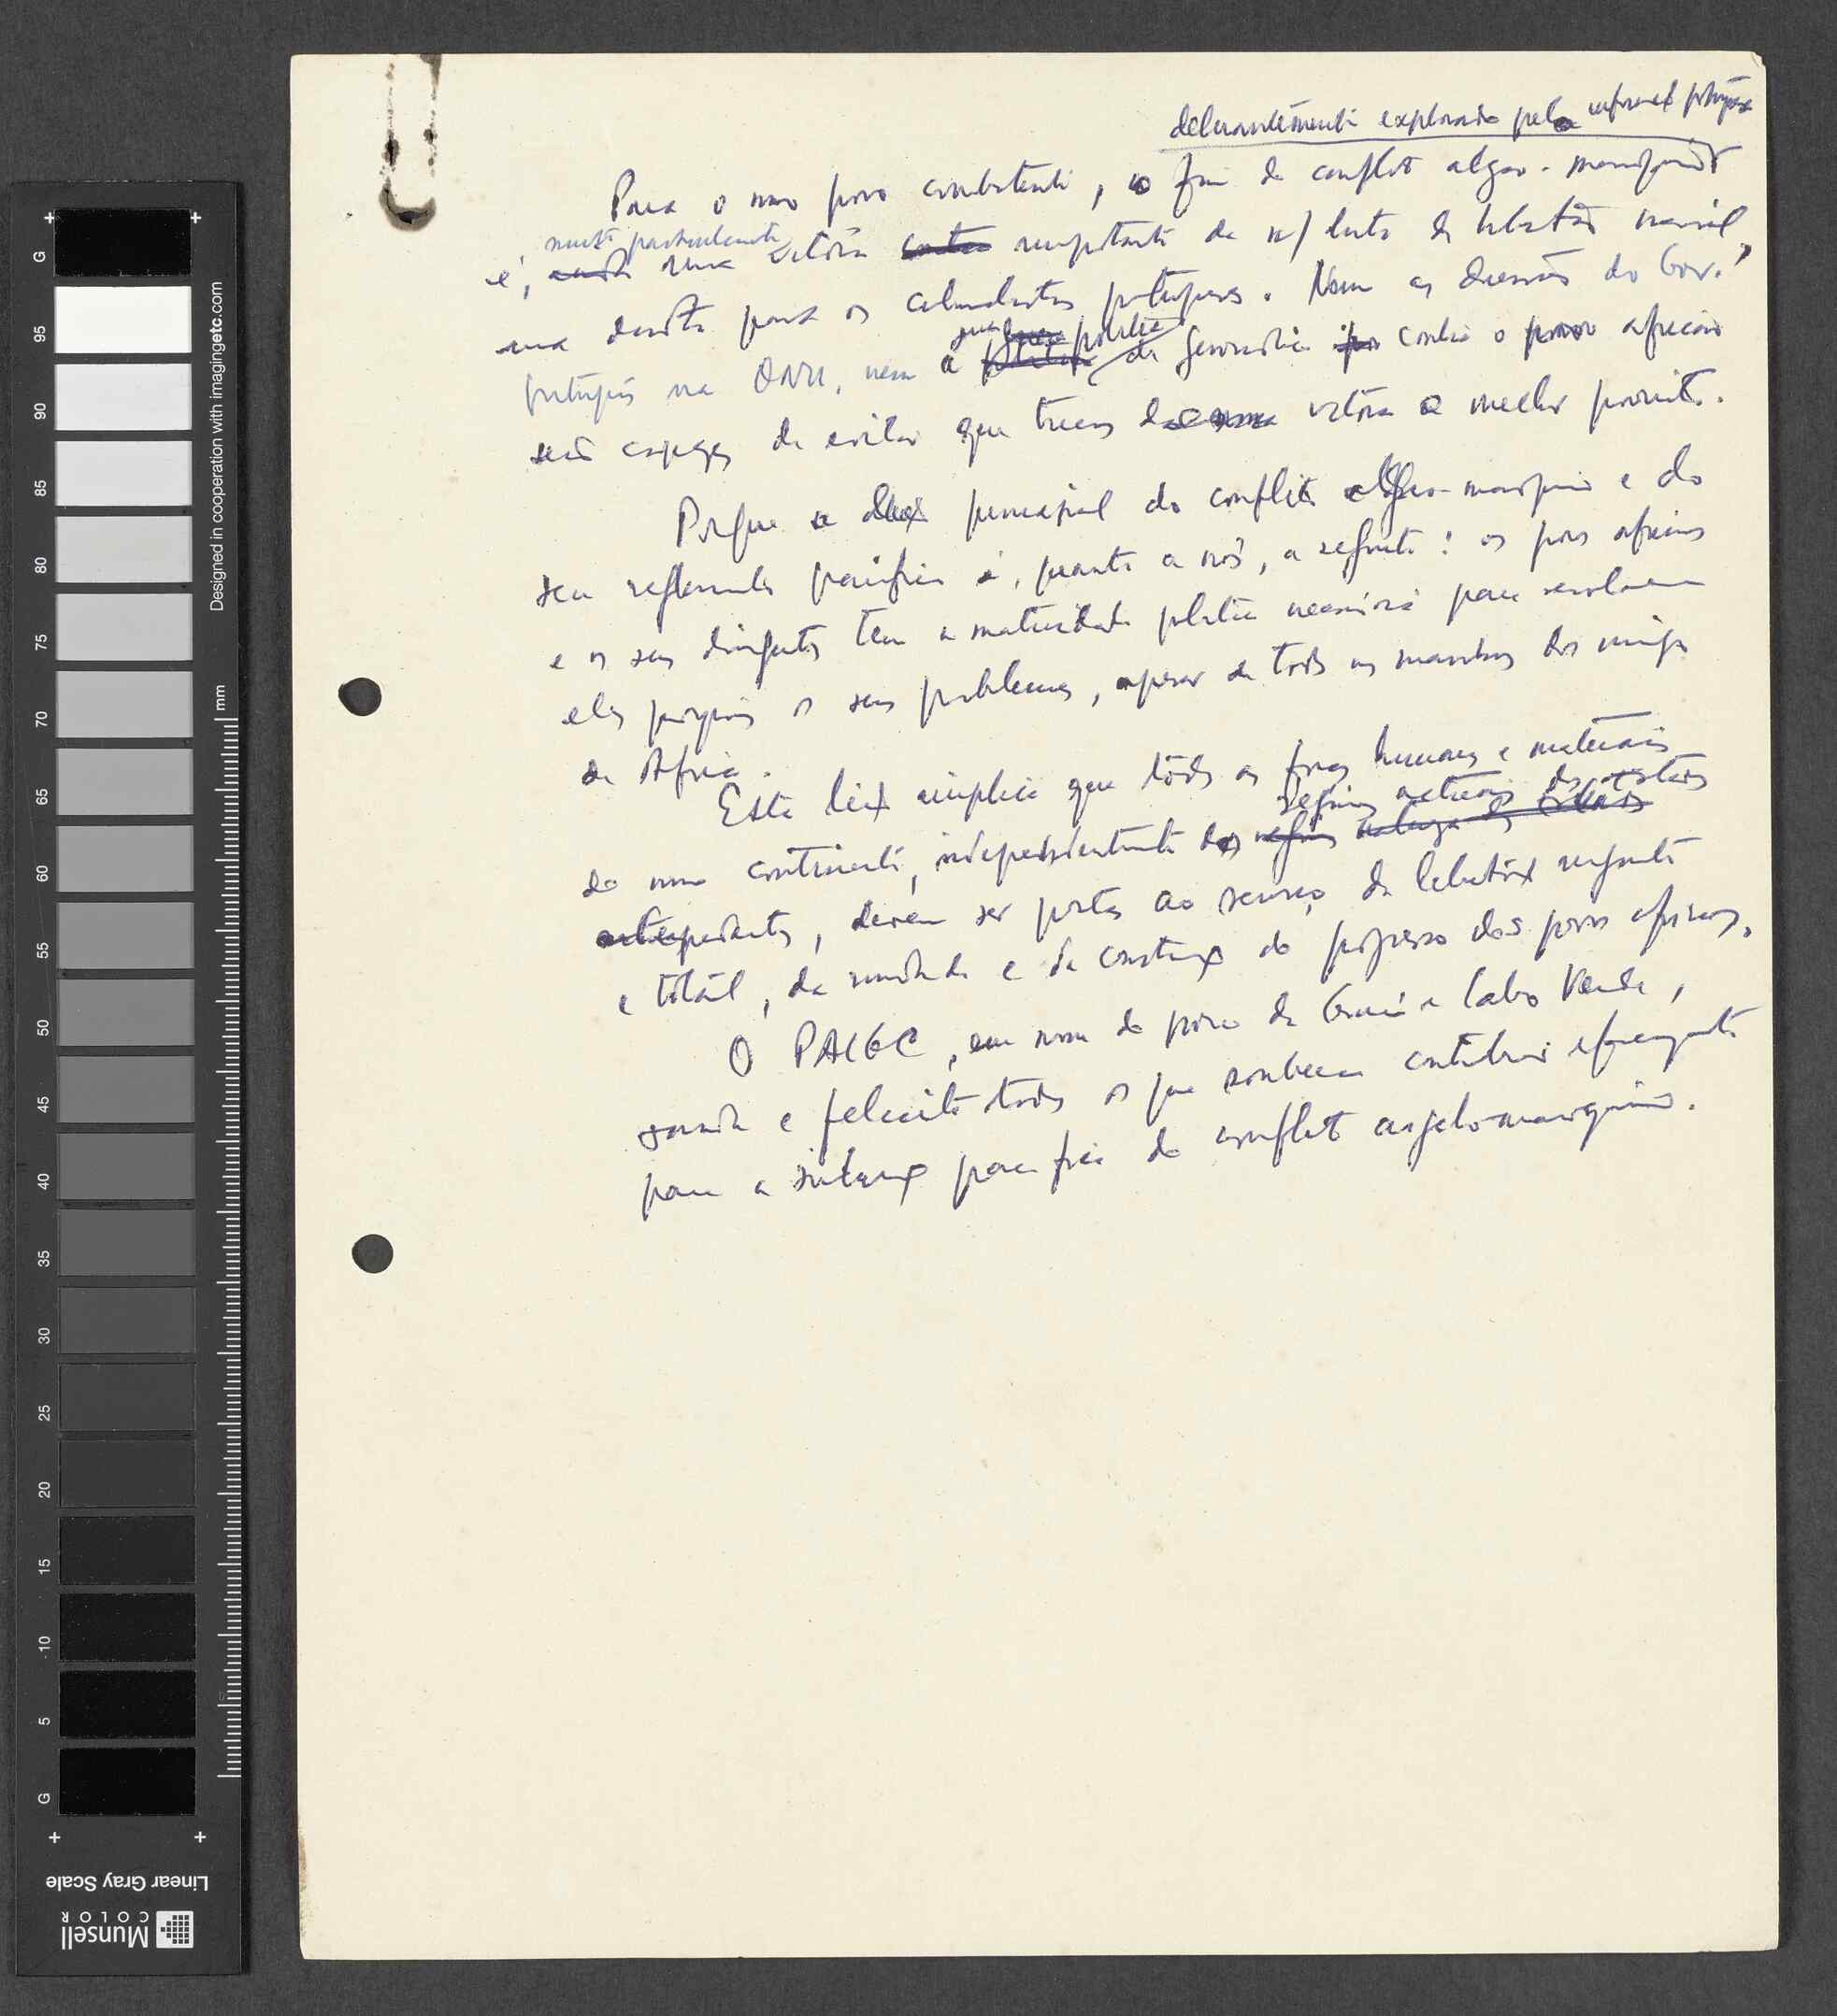 delirantemente explorado pela
Para o nosso povo combatente, o fim do conflito algero-marroquino
é, muito particularmente uma vitória importante da n/ luta de libertação nacional,
uma derrota para os colonialistas portugueses. Nem as do Gov.
português na ONU, nem a sua política de genocídio contra o povo africano
serão capazes de evitar que tiremos vitória o melhor proveito.
Porque a principal do conflito algero-marroquino e do
seu pacífico é, quanto a nós, a seguinte: os povos africanos
e os seus dirigentes têm a maturidade política necessária para resolverem
eles próprios os seus problemas, apesar de todas as manobras dos inimigos
da África.
Esta implica que todas as forças humanas e materiais
do nosso continente, independentemente dos regimes actuais dos estados
devem ser postas ao serviço da libertação urgente
e total, da unidade e da construção do progresso dos povos africanos.
O PAIGC, em nome do povo da Guiné e Cabo Verde,
saúda e felicita todos os que souberam contribuir
para a solução pacífica do conflito argelo-marroquino.
G
95
90
85
80
75
70
65
60
55
50
45
40
35
30
25
20
15
10
5
G
mm
Designed in cooperation with imagingetc.com
Linear Gray Scale
Munsell
COLOR